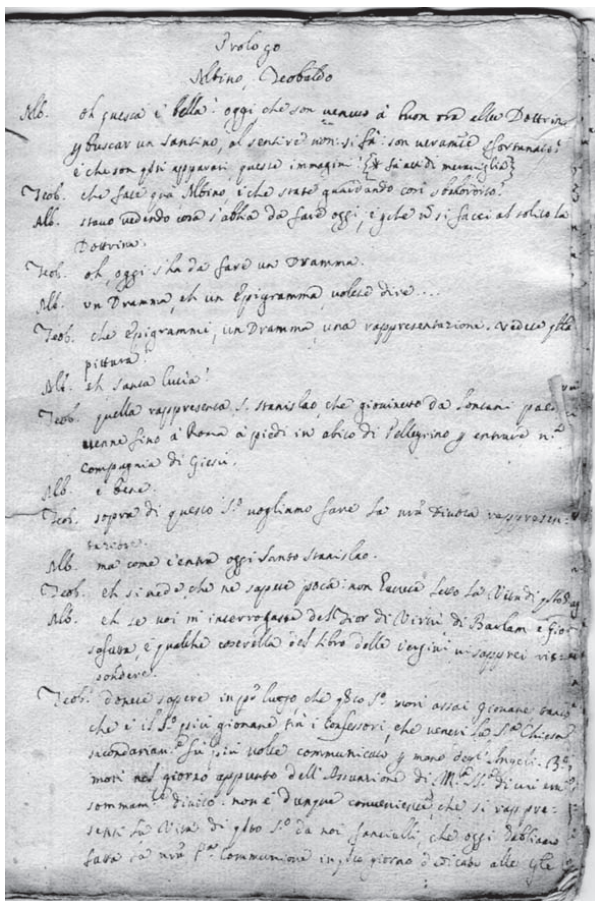 Prologo
Albino, Teobaldo
Alb. oh questa è bella! oggi che son venuto à buon ora alla Dottrina
p buscar un santino, al sentire non si fà: son veramte sfortunato!
è che son qsti apparati, queste immagini! fa atti di meraviglia
Teob. che fate quà Albino, è che state guardando così sbalordito?
Alb. stavo vedendo cosa s'abbia da fare oggi, e pche nō si facci al solito la
Dottrina.
Teob. oh, oggi s'ha da fare un Dramma.
Alb. un Dramma, eh un Epigramma volete dire....
Teob. che Epigrammi, un Dramma, una rappresentazione. vedete qlla
pittura!
Alb. eh santa Lucia!
Teob. quella rappresenta S. Stanislao, che giovinetto da lontani paesi
venne fino à Roma à piedi in abito di Pellegrino p entrare nla
Compagnia di Giesù.
Alb. è bene.
Teob. sopra di questo Sto vogliamo fare la nrā divota rappresen-
tazione.
Alb. ma come c'entra oggi Santo Stanislao.
Teob. eh si vede, che ne sapete poco: non avete letto la Vita di qsto
Alb. eh se voi m'interrogaste del Fior di Virtù di Barlam e Gio
safatte, è qualche coserella del libro delle Vergini vi saprei ris-
pondere.
Teob. dovete sapere in po luogo, che qsto Sto morì assai giovane
che è il Sto più giovane trà i Confessori, che veneri la Sta Chiesa
secondariamte fù più volte communicato p mano degl' Angeli. 3o
morì nel giorno appunto dell' Assunzione di Ma Sma di cui era
sommamte divoto: non è dunque conveniente, che si rappre-
senti la Vita di qsto Sto da noi fanciulli, che oggi dobbiamo
fare la nrā pa Communione in giorno dedicato alle